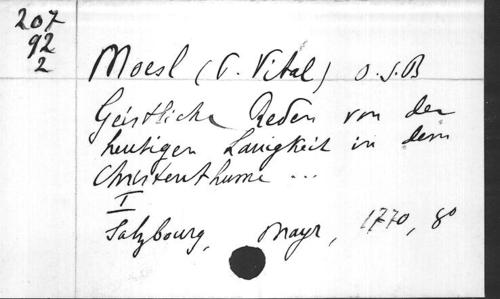 207
92
2
Moesl (P. Vital) O.S.B
Geistliche Reden von der
heutigen Lauigkeit in dem
Christenthume ...
I
Salzbourg, Mayr, 1770, 8o